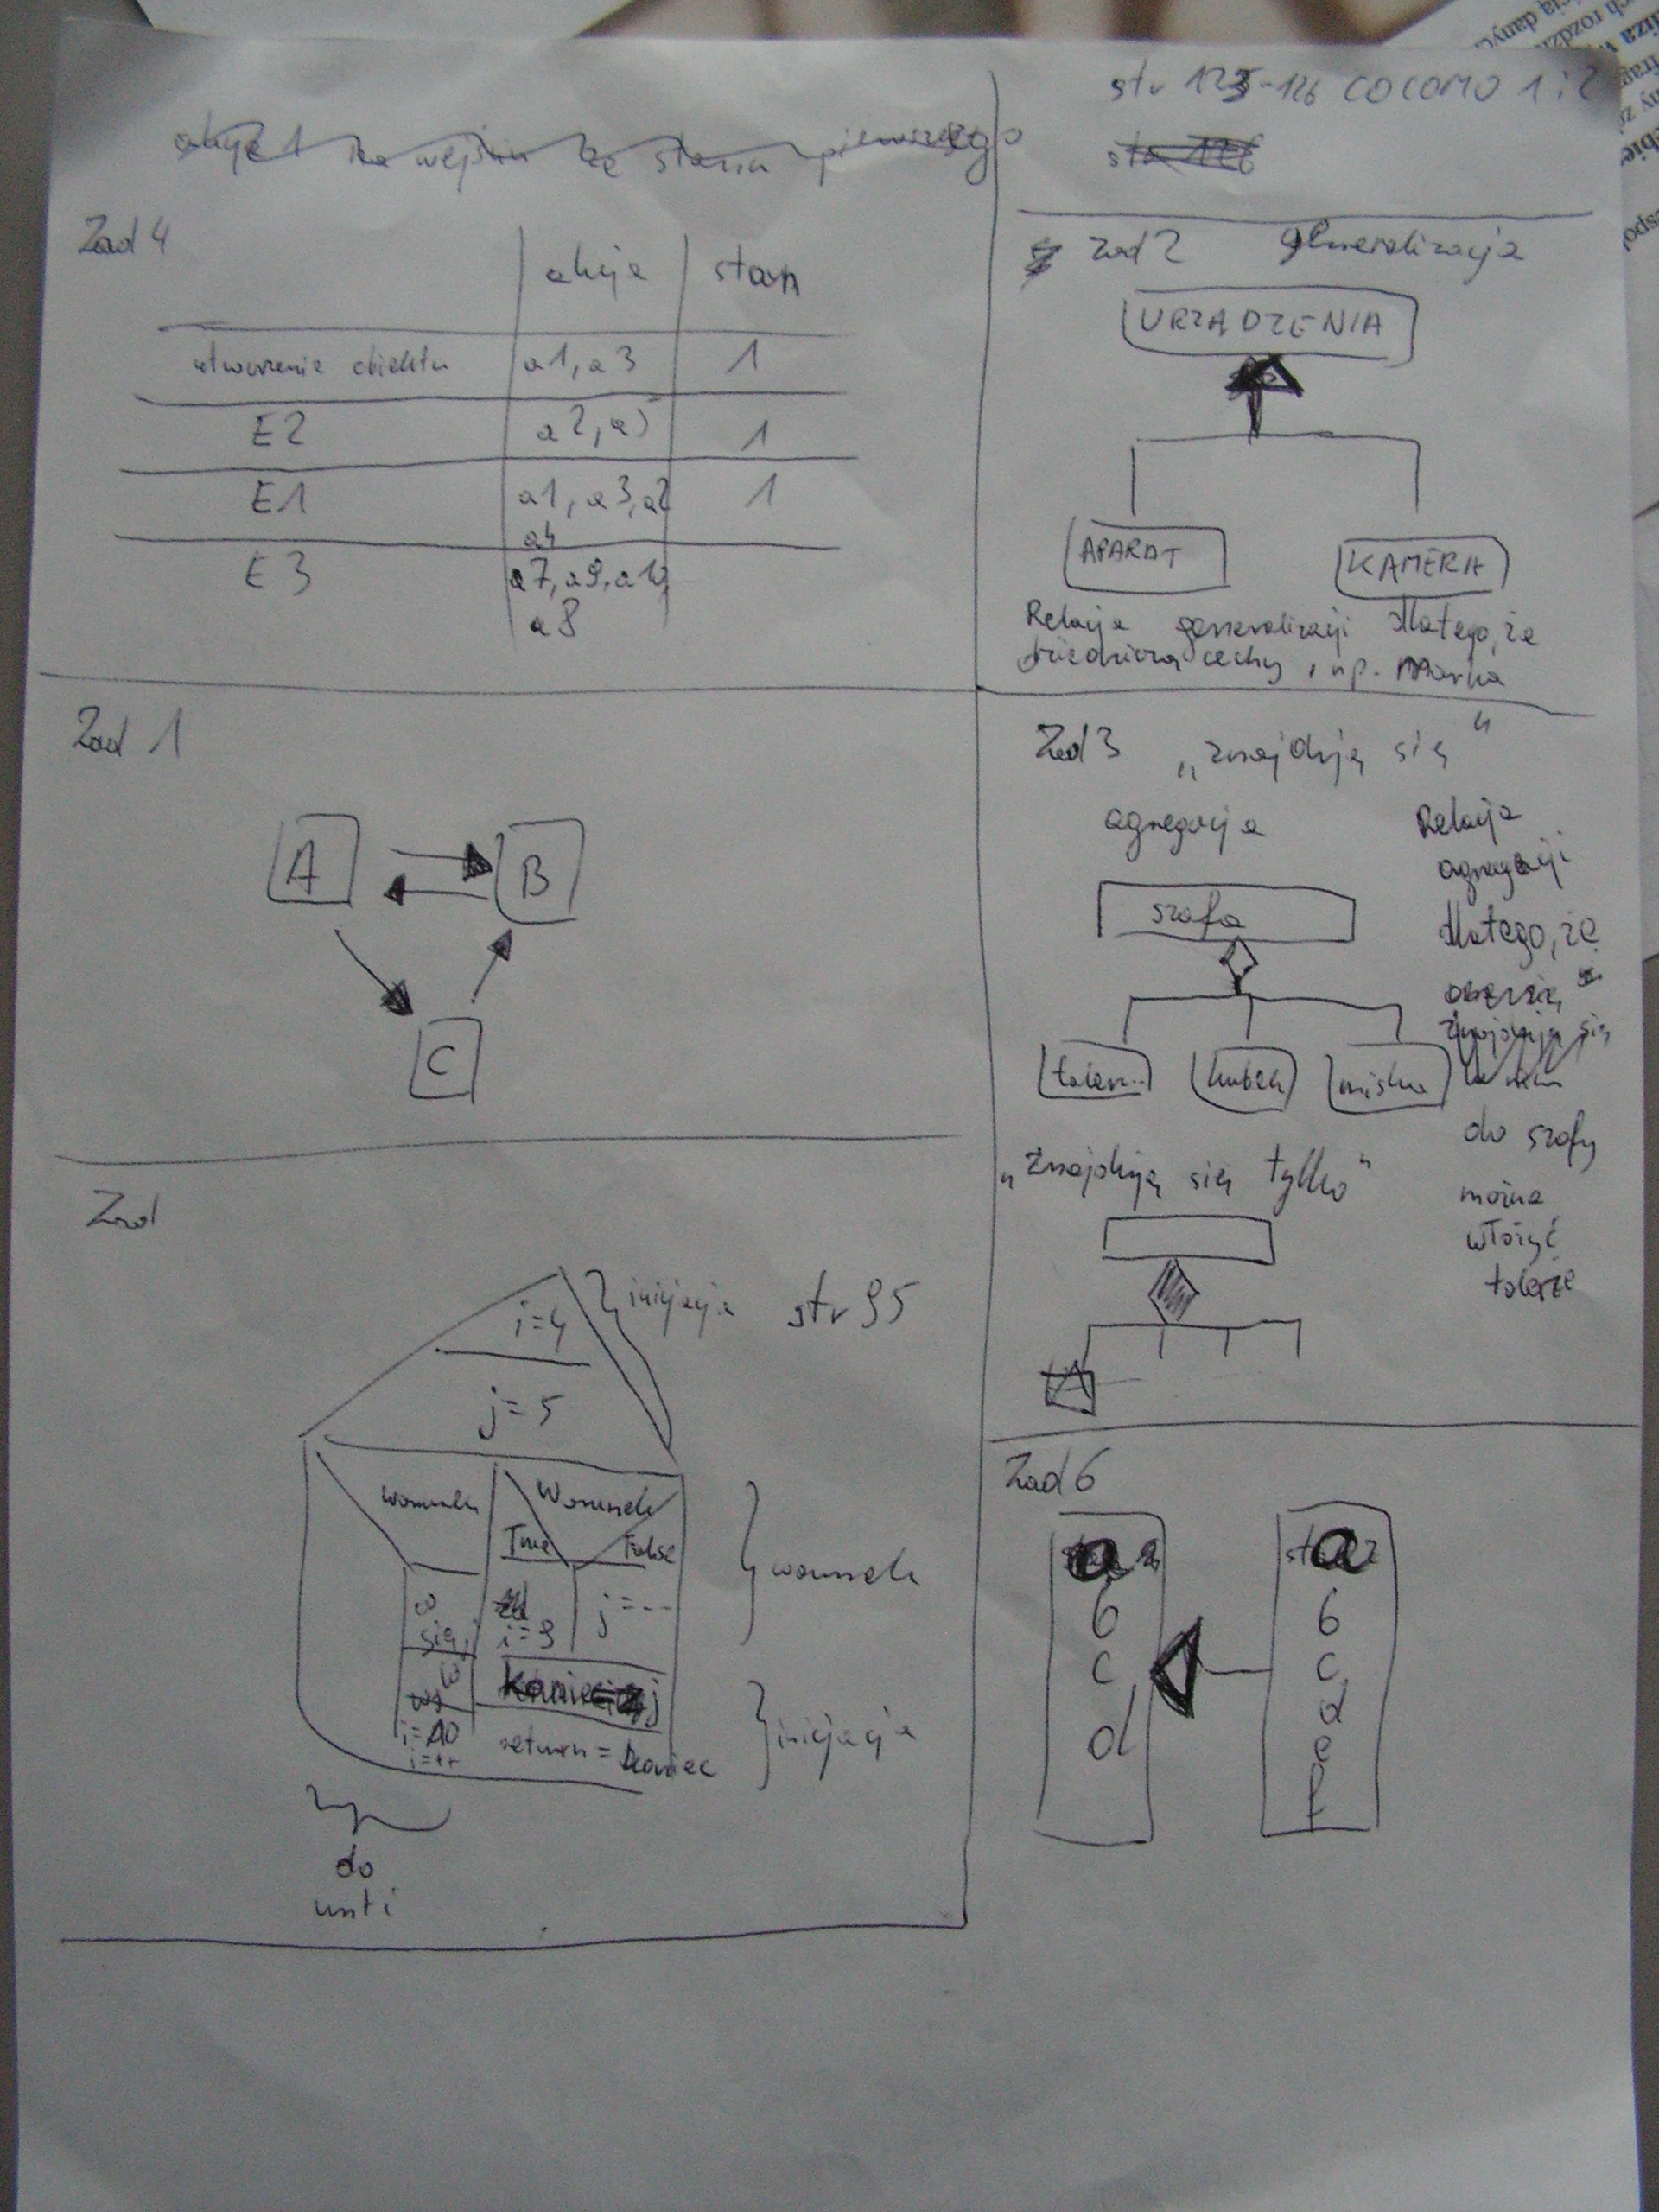 str 125-126 COCOMO 1 i 2
Zad 4
akcja stan
utworzenie obiektu a1, a3 1
E2 a2, a5 1
E1 a1, a3, a2 1
a4
E3 a7, a9, a10,
a8
zad 2 generalizacja
URZĄDZENIA
APARAT KAMERA
Relacja generalizacji dlatego, że
dziedziczą cechy, np. Marka
Zad 1
A B
C
Zad 3 „znajdują się"
agregacja
Relacja
agregacji
dlatego, że
szafa
talerz.. kubek miska
do szafy
można
włożyć
talerze
„znajdują się tylko"
Zad
i=4
inicjacja str 95
j=5
warunek Warunek
True False
i=9 j=--
warunek
i=10
i=++
return = koniec
inicjacja
do
unti
Zad 6
a a
b b
c c
d d
e
f